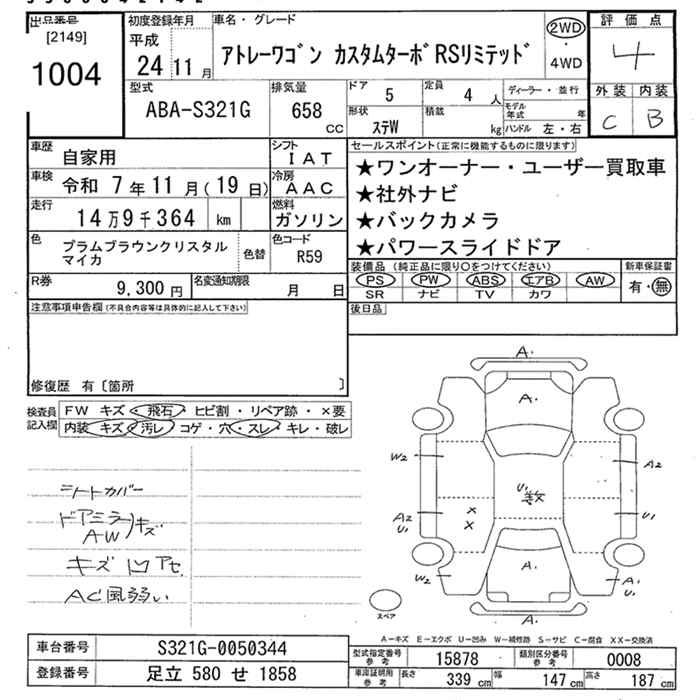 出品番号
[2149]
1004
初度登録年月
平成
24 11 月
車名・グレード
アトレーワゴン カスタムターボRSリミテッド
2WD
・
4WD
評価点
4
外装 内装
C B
型式
ABA-S321G
排気量
658
CC
ドア
5
定員
4 人
ディーラー・並行
形状
ステW
積載
kg
モデル年式 年
ハンドル 左・右
車歴
自家用
シフト
IAT
車検
令和 7 年 11 月(19 日)
冷房
AAC
走行
14 万 9 千 364 km
燃料
ガソリン
色
プラムブラウンクリスタル
マイカ
色替
色コード
R59
R券
9,300 円
名変通知期限
月 日
セールスポイント(正常に機能するものに限ります)
★ワンオーナー・ユーザー買取車
★社外ナビ
★バックカメラ
★パワースライドドア
装備品(純正品に限り○をつけてください)
PS PW ABS エアB AW
SR ナビ TV カワ
新車保証書
有・無
後日品
注意事項申告欄(不具合内容等は具体的に記入して下さい)
修復歴 有〔箇所 〕
検査員
記入欄
FW キズ・飛石・ヒビ割・リペア跡・×要
内装 キズ 汚レ コゲ・穴・スレ・キレ・破レ
シートカバー
ドアミラー
AW
キズ
キズ 凹 アセ
AC風弱い
A・
A・
W2
A2
U・数
A2
U1
×
×
U1
W2
A・
A・
U1
スペア
A・
A－キズ E－エクボ U－凹み W－補修跡 S－サビ C－腐食 XX－交換済
車台番号
S321G-0050344
登録番号
足立 580 せ 1858
型式指定番号
参考
15878
類別区分番号
参考
0008
車庫証明用
参考
長さ
339 cm
幅
147 cm
高さ
187 cm